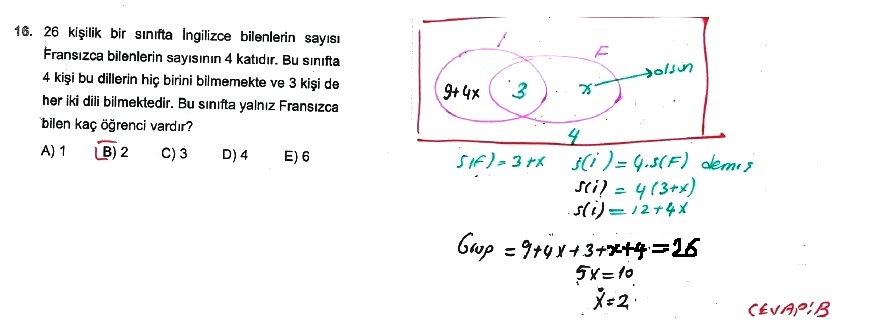 16. 26 kişilik bir sınıfta İngilizce bilenlerin sayısı
Fransızca bilenlerin sayısının 4 katıdır. Bu sınıfta
4 kişi bu dillerin hiç birini bilmemekte ve 3 kişi de
her iki dili bilmektedir. Bu sınıfta yalnız Fransızca
bilen kaç öğrenci vardır?
A) 1 B) 2 C) 3 D) 4 E) 6
İ F
9+4x 3 x olsun
4
s(F) = 3+x s(i) = 4.s(F) demiş
s(i) = 4(3+x)
s(i) = 12+4x
Grup = 9+4x+3+x+4=26
5x=10
x=2
CEVAP:B